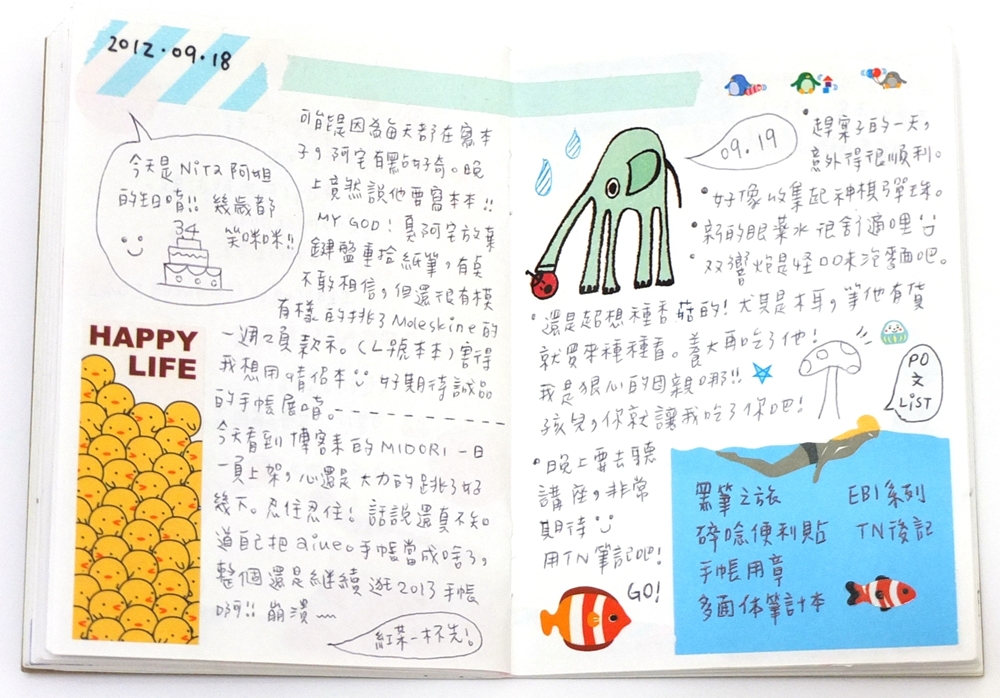 2012.09.18
今天是NiTa阿姐
的生日唷!! 幾歲都
笑咪咪!!
34
可能是因為每天都在寫本
子,阿宅有點好奇。晚
上竟然說他要寫本本!!
MY GOD! 叫阿宅放棄
鍵盤重拾紙筆,有點
不敢相信,但還很有模
有樣的挑了Moleskine的
一週2頁款禾。(L號本本)害得
我想用 好期待誠品
的手帳展唷。
HAPPY
LIFE
今天看到博客來的MIDORI一日
一頁上架,心還是大力的跳了好
幾下。忍住忍住! 話說還真不知
道自己把aiueo手帳當成啥了,
整個還是繼續逛2013手帳
啊!! 崩潰~
紅茶一杯先!
09.19
•趕案子的一天,
意外得很順利。
•好像收集起神棋彈珠。
•新的眼藥水很舒適哩
•双響炮是怪口味泡麵吧。
•還是超想種香菇的! 尤其是木耳,等他有貨
就買來種種看。養大再吃了他!
我是狠心的母親哪!!
孩兒,你就讓我吃了你吧!
PO
文
LiST
•晚上要去聽
講座,非常
期待
用TN筆記吧!
GO!
墨筆之旅
碎唸便利貼
手帳用章
多面体筆計本
EBI系列
TN後記